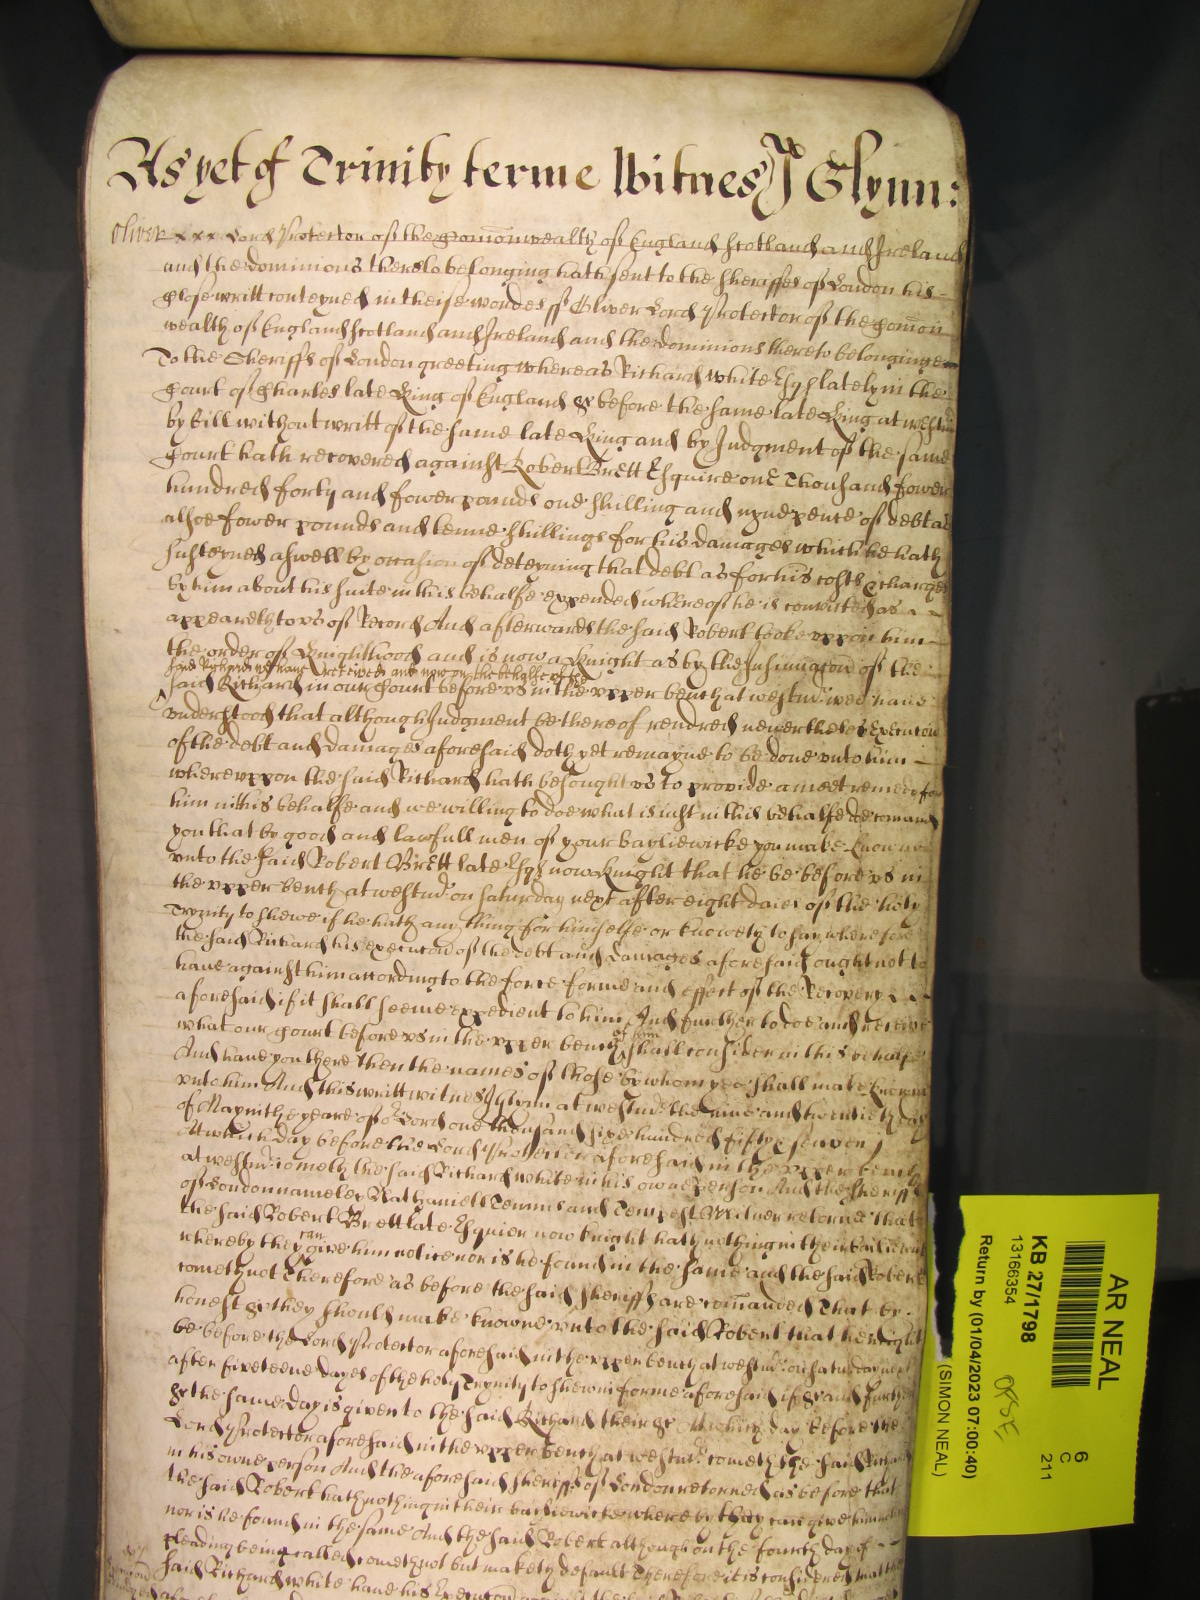 As yet of Trinity terme Witnes J Glynn:
Oliver Lord Protector of the Comonwealth of England Scotland and Ireland
and the dominions thereto belonging hath sent to the Sheriffes of London his
close writt conteyned in theise wordes ss Oliver Lord Protector of the Comon
wealth of England Scotland and Ireland and the dominions thereto belonginge
To the Sheriffs of London greeting whereas Richard White Esq lately in the
Court of Charles late King of England &c before the same late King at Westm
by bill without writt of the same late King and by Judgment of the same
Court hath recovered against Robert Brett Esquire one Thousand fower
hundred forty and fower pounds one shilling and nyne pence of debt and
alsoe fower pounds and tenne shillings for his damages which he hath
susteyned aswell by occasion of deteyning that debt as for his costs & charges
by him about his suite in this behalfe expended whereof he is convicted as
appeareth to us of Record And afterwards the said Robert tooke uppon him
the order of Knighthood and is now a Knight as by the Insinuacon of the
said Richard we have received and now on the behalfe of the
said Richard in our Court before us in the upper bench at westmr wee have
understood that although Judgment be thereof rendred neverthelesse Execucon
of the debt and damages aforesaid doth yet remayne to be done unto him
whereuppon the said Richard hath besought us to provide a meet remedy for
him in this behalfe and we willing to doe what is just in this behalfe doe comand
you that by good and lawfull men of your bayliewicke you make knowne
unto the said Robert Brett late Esqr now Knight that he be before us in
the upper bench at westmr on Saturday next after eight daies of the holy
Trynity to shewe if he hath any thing for himselfe or knoweth to say wherefore
the said Richard his execucon of the debt and damages aforesaid ought not to
have against him according to the force forme and effect of the Recovery
aforesaid if it shall seeme expedient to him And further to doe and receive
what our Court before us in the upper bench of him shall consider in this behalfe
And have you there then the names of those by whom yee shall make knowne
unto him And this writt witnes J Glynn at westmr the nine and twentieth day
of May in the yeare of or Lord one thousand sixe hundred fifty seaven
At which day before the Lord Protector aforesaid in the upper bench
at westmr cometh the said Richard white in his owne person And the Sheriffs
of London namely Nathaniell Temms and Tempest Milner retorne that
the said Robert Brett late Esquier now knight hath nothing in their bailiewick
whereby they can give him notice nor is he found in the same and the said Robert
cometh not Therefore as before the said Sheriffs are comanded That by
honest &c they should make knowne unto the said Robert that he might
be before the Lord Protector aforesaid in the upper bench at westmr on saturday next
after fiveteene dayes of the holy Trynity to shew in forme aforesaid if &c and further
&c the same day is given to the said Richard there &c At which day before the
Lord Protector aforesaid in the upper bench at westmr cometh the said Richard
in his owne person And the aforesaid Sheriffs of London retorned as before that
the said Robert hath nothing in their bailiewicke whereby they can give him notice
nor is he found in the same And the said Robert although on the fourth day of
pleading being called cometh not but maketh default Therefore it is considered that the
said Richard white have his Execucon against the
AR NEAL
6
C
211
KB 27/1798
13166354
Return by (01/04/2023 07:00:40)
(SIMON NEAL)